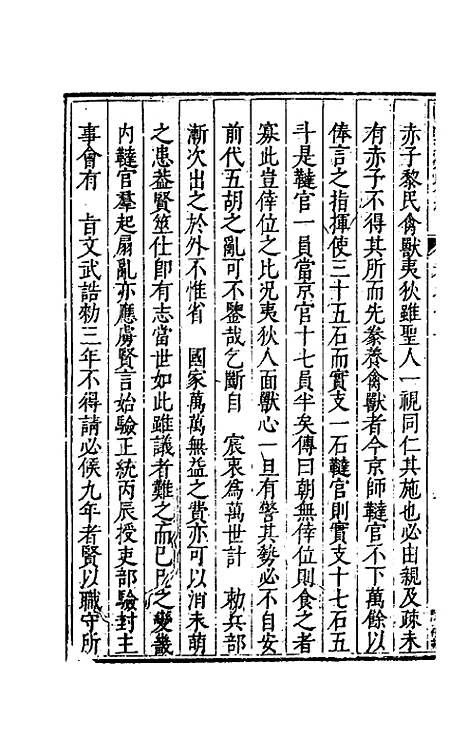 赤子黎民禽獸夷狄雖聖人一視同仁其施也必由親及疎未
有赤子不得其所而先豢養禽獸者今京師韃官不下萬餘以
俸言之指揮使三十五石而實支一石韃官則實支十七石五
斗是韃官一員當京官十七員半矣傳曰朝無倖位則食之者
寡此豈倖位之比況夷狄人面獸心一旦有警其勢必不自安
前代五胡之亂可不鑒哉乞斷自　宸衷為萬世計　勅兵部
漸次出之於外不惟省　國家萬萬無益之費亦可以消未萌
之患葢賢筮仕即有志當世如此雖議者難之而已巳之變畿
内韃官羣起扇亂亦應虜賢言始驗正統丙辰授吏部驗封主
事會有　旨文武誥勑三年不得請必候九年者賢以職守所